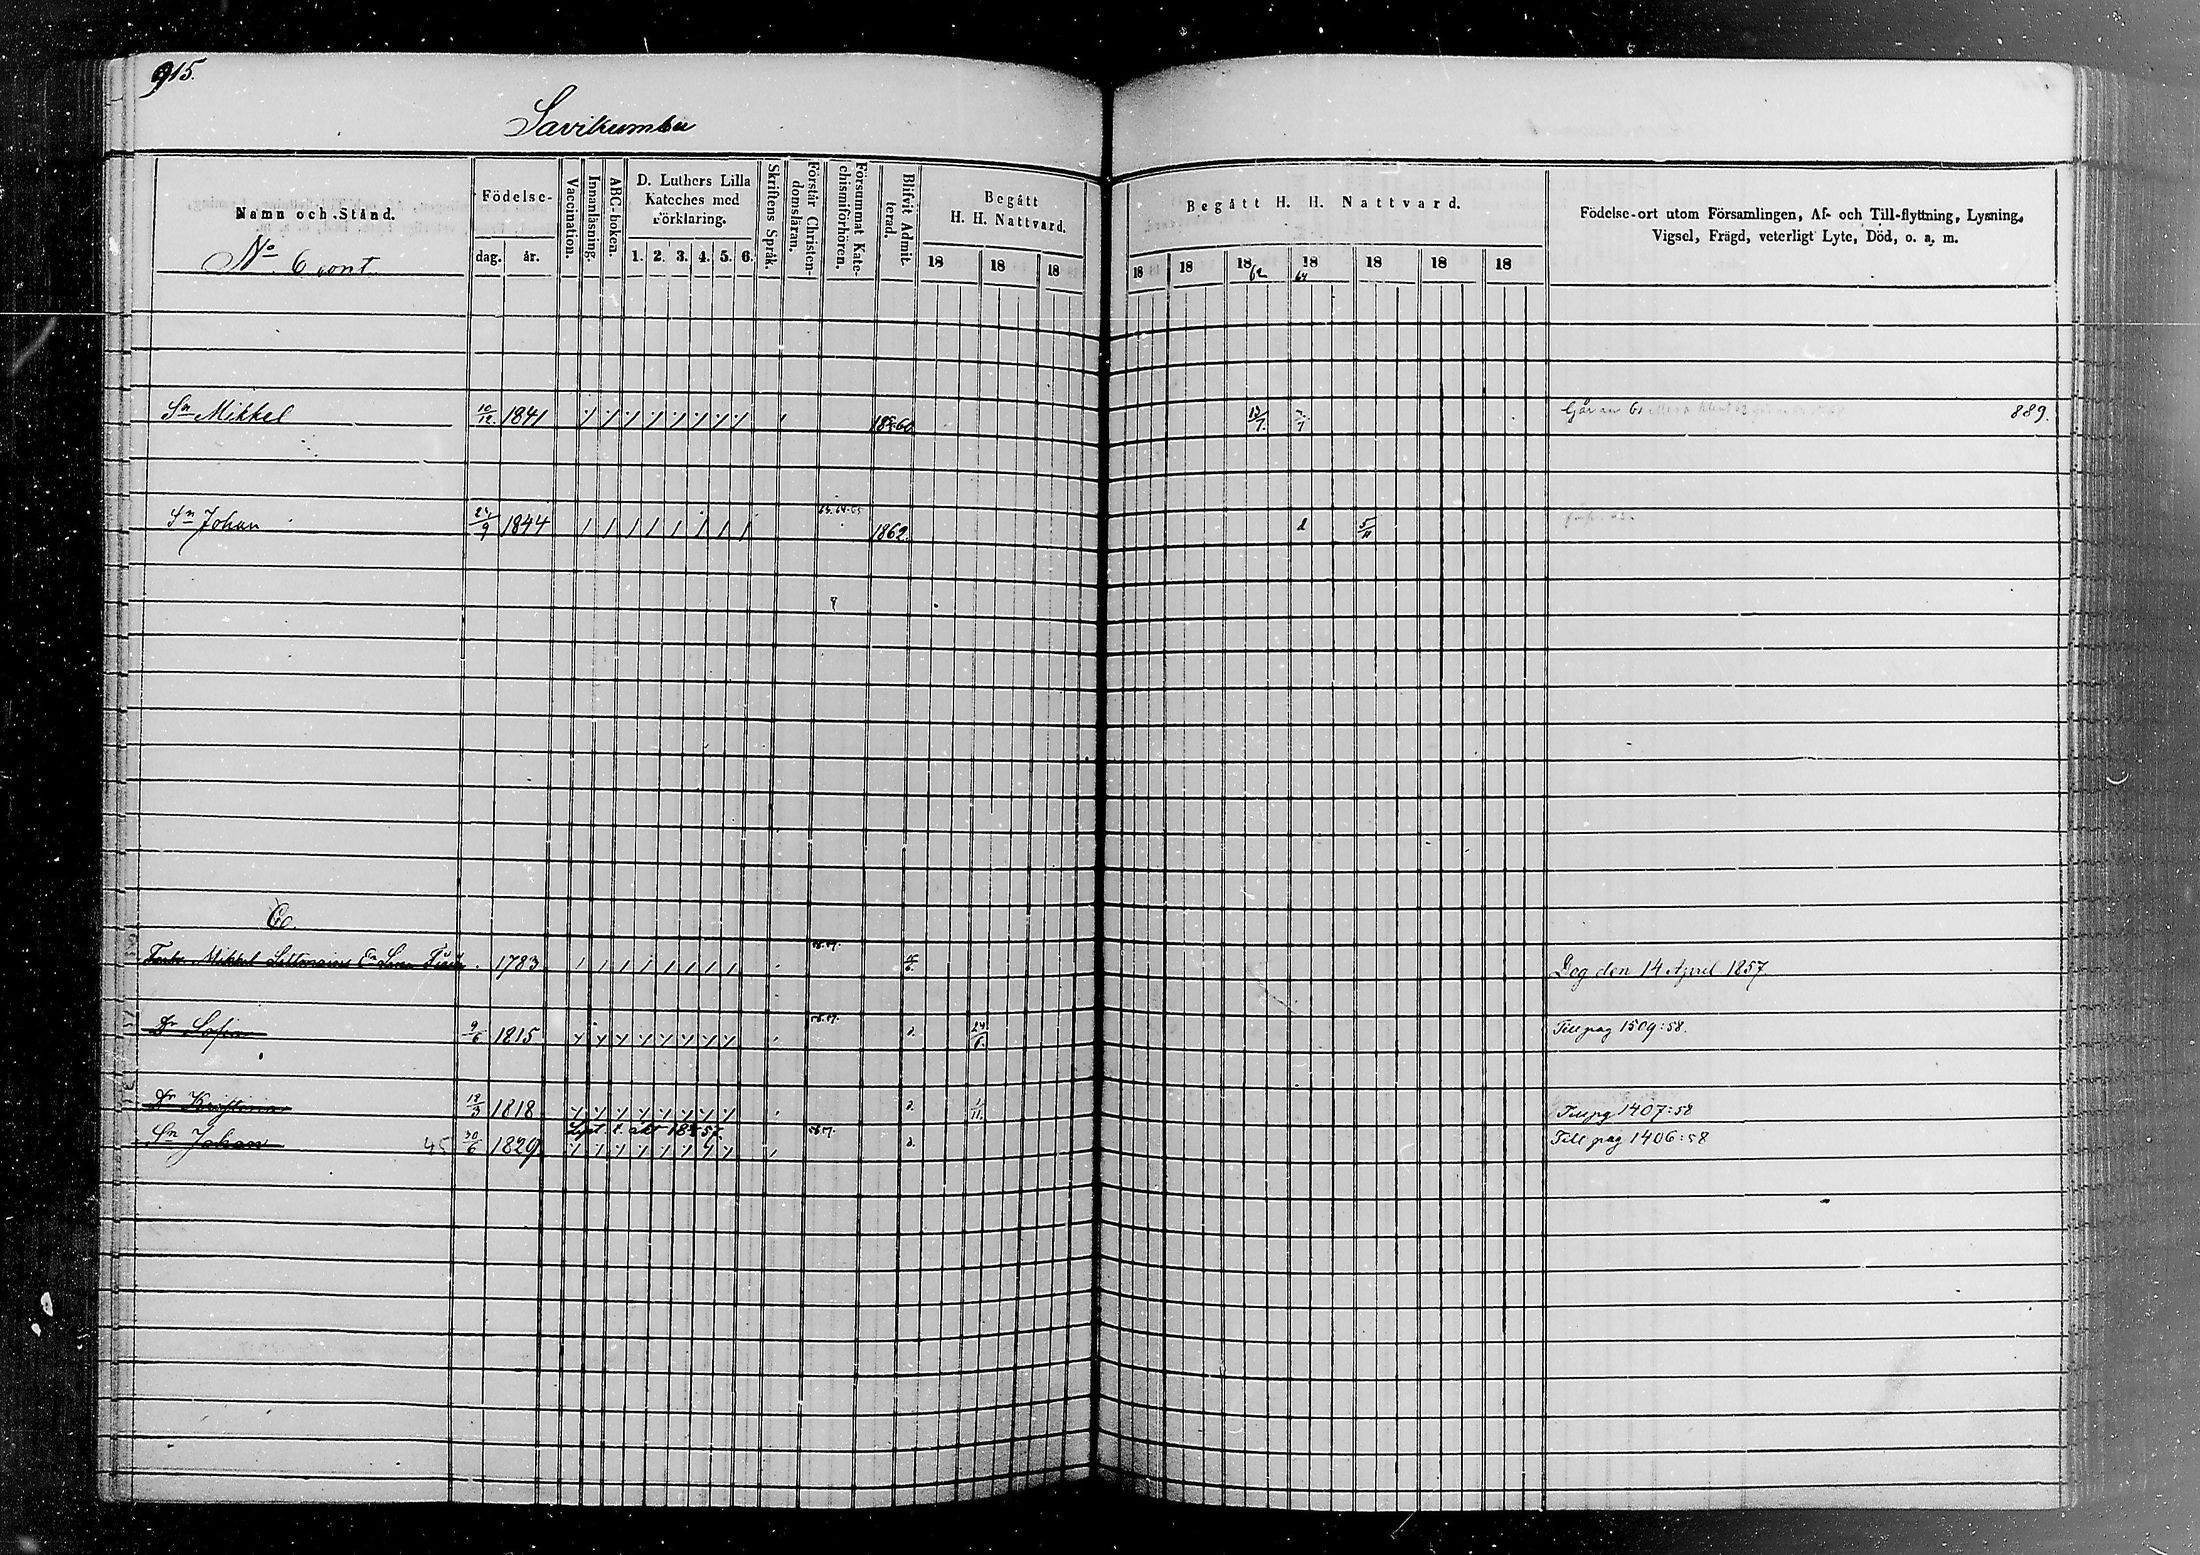 915.
Savikumbu
Namn och Stånd.
No 6 cont.
Födelse-
dag. år.
Vaccination.
Innanläsning.
ABC-boken.
D. Luthers Lilla
Kateches med
Förklaring.
1. 2. 3. 4. 5. 6.
Skriftens Språk.
Förstår Christen-
domsläran.
Försummat Kate-
chismiförhören.
Blifvit Admit-
terad.
Begått
H. H. Nattvard.
18 18 18
Begått H. H. Nattvard.
18 18 18 62 18 64 18 18 18
Födelse-ort utom Församlingen, Af- och Till-flyttning, Lysning,
Vigsel, Frägd, veterligt Lyte, Död, o. a. m.
Sn Mikkel 10/12 1841 1860 889.
Sn Johan 24/9 1844 63.64.65 1862 5/11
Co.
Mikkel 1783 Dog den 14 April 1857.
Dr Sofia 9/6 1815 24/6. Till pag 1509:58.
Dr Kristina 18/3 1818 1/11. Till pg 1407:58
Sn Johan 45 30/6 1829 Till pag 1406:58